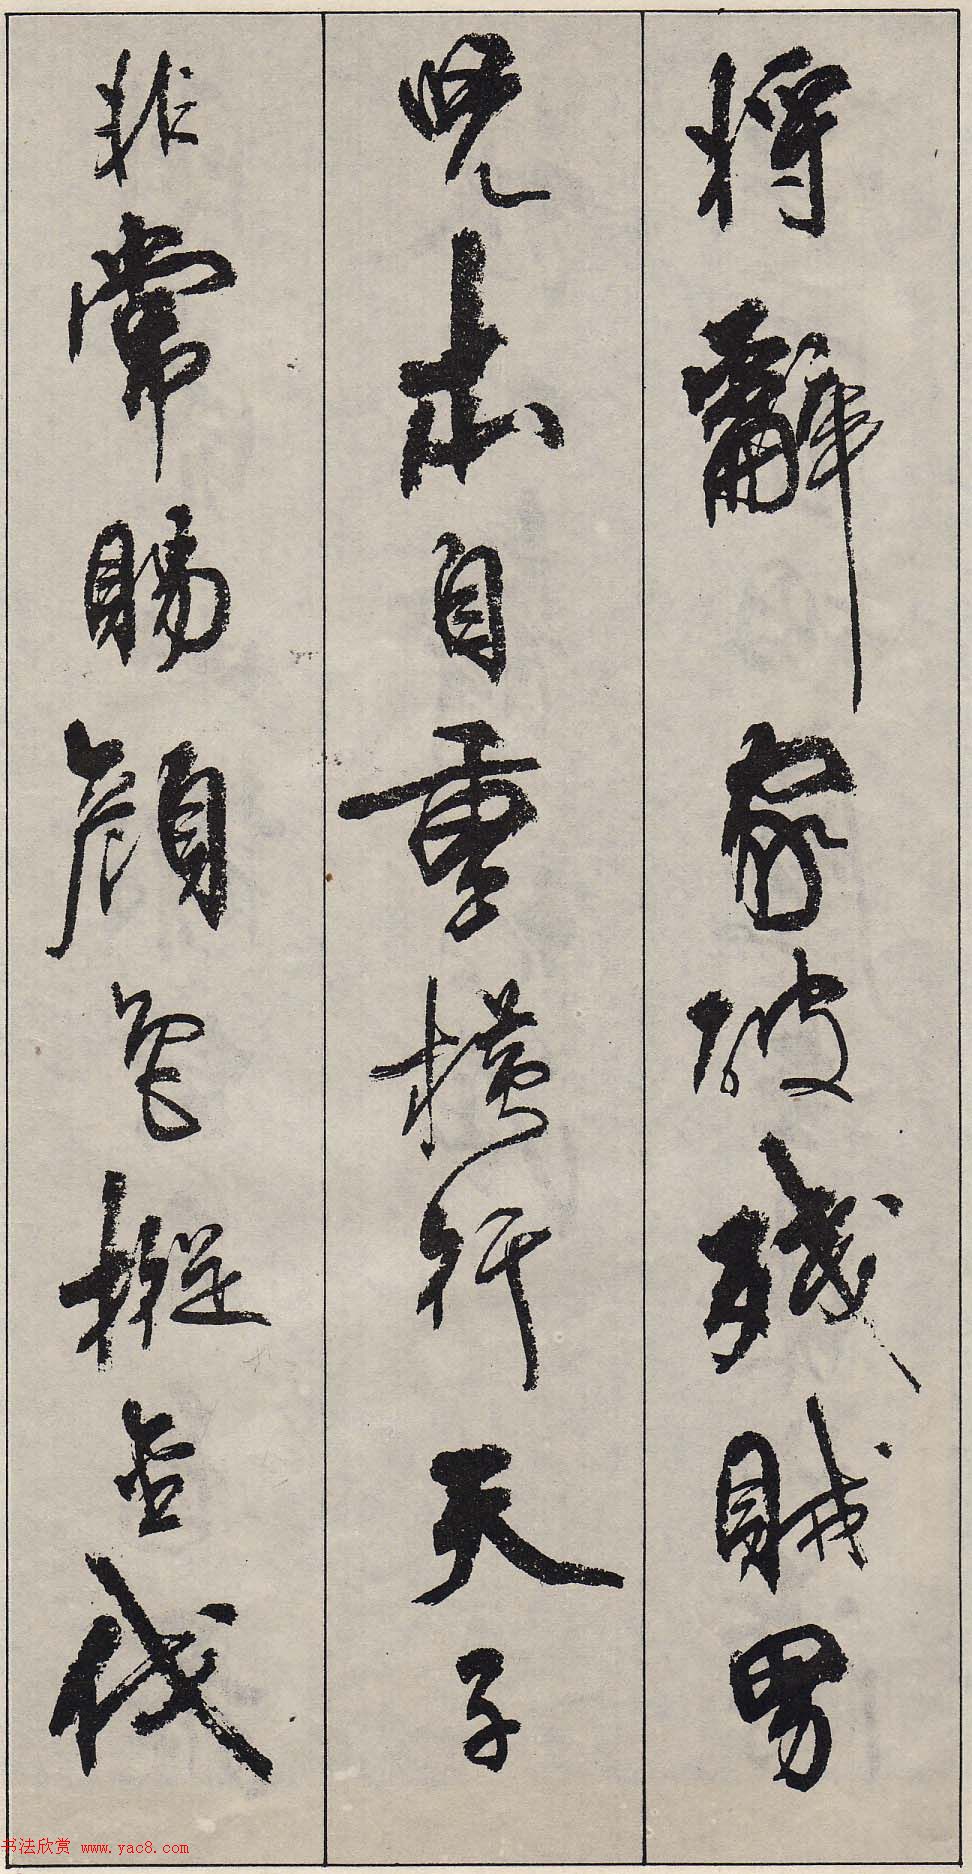 将辭家破殘賊男
兒本自重橫行天子
非常賜顔色摐金伐
书法欣赏 www.yac8.com